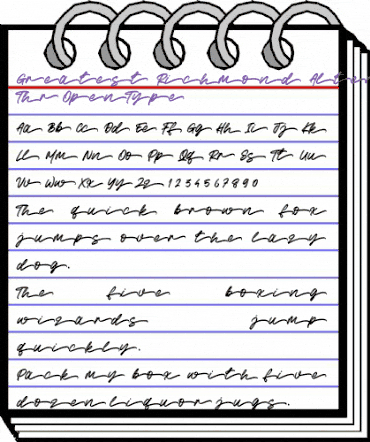 Greatest Richmond Alte
Thr OpenType
Aa Bb Cc Dd Ee Ff Gg Hh Ii Jj Kk
Ll Mm Nn Oo Pp Qq Rr Ss Tt Uu
Vv Ww Xx Yy Zz 1 2 3 4 5 6 7 8 9 0
The quick brown fox
jumps over the lazy
dog.
The five boxing
wizards jump
quickly.
Pack my box with five
dozen liquor jugs.